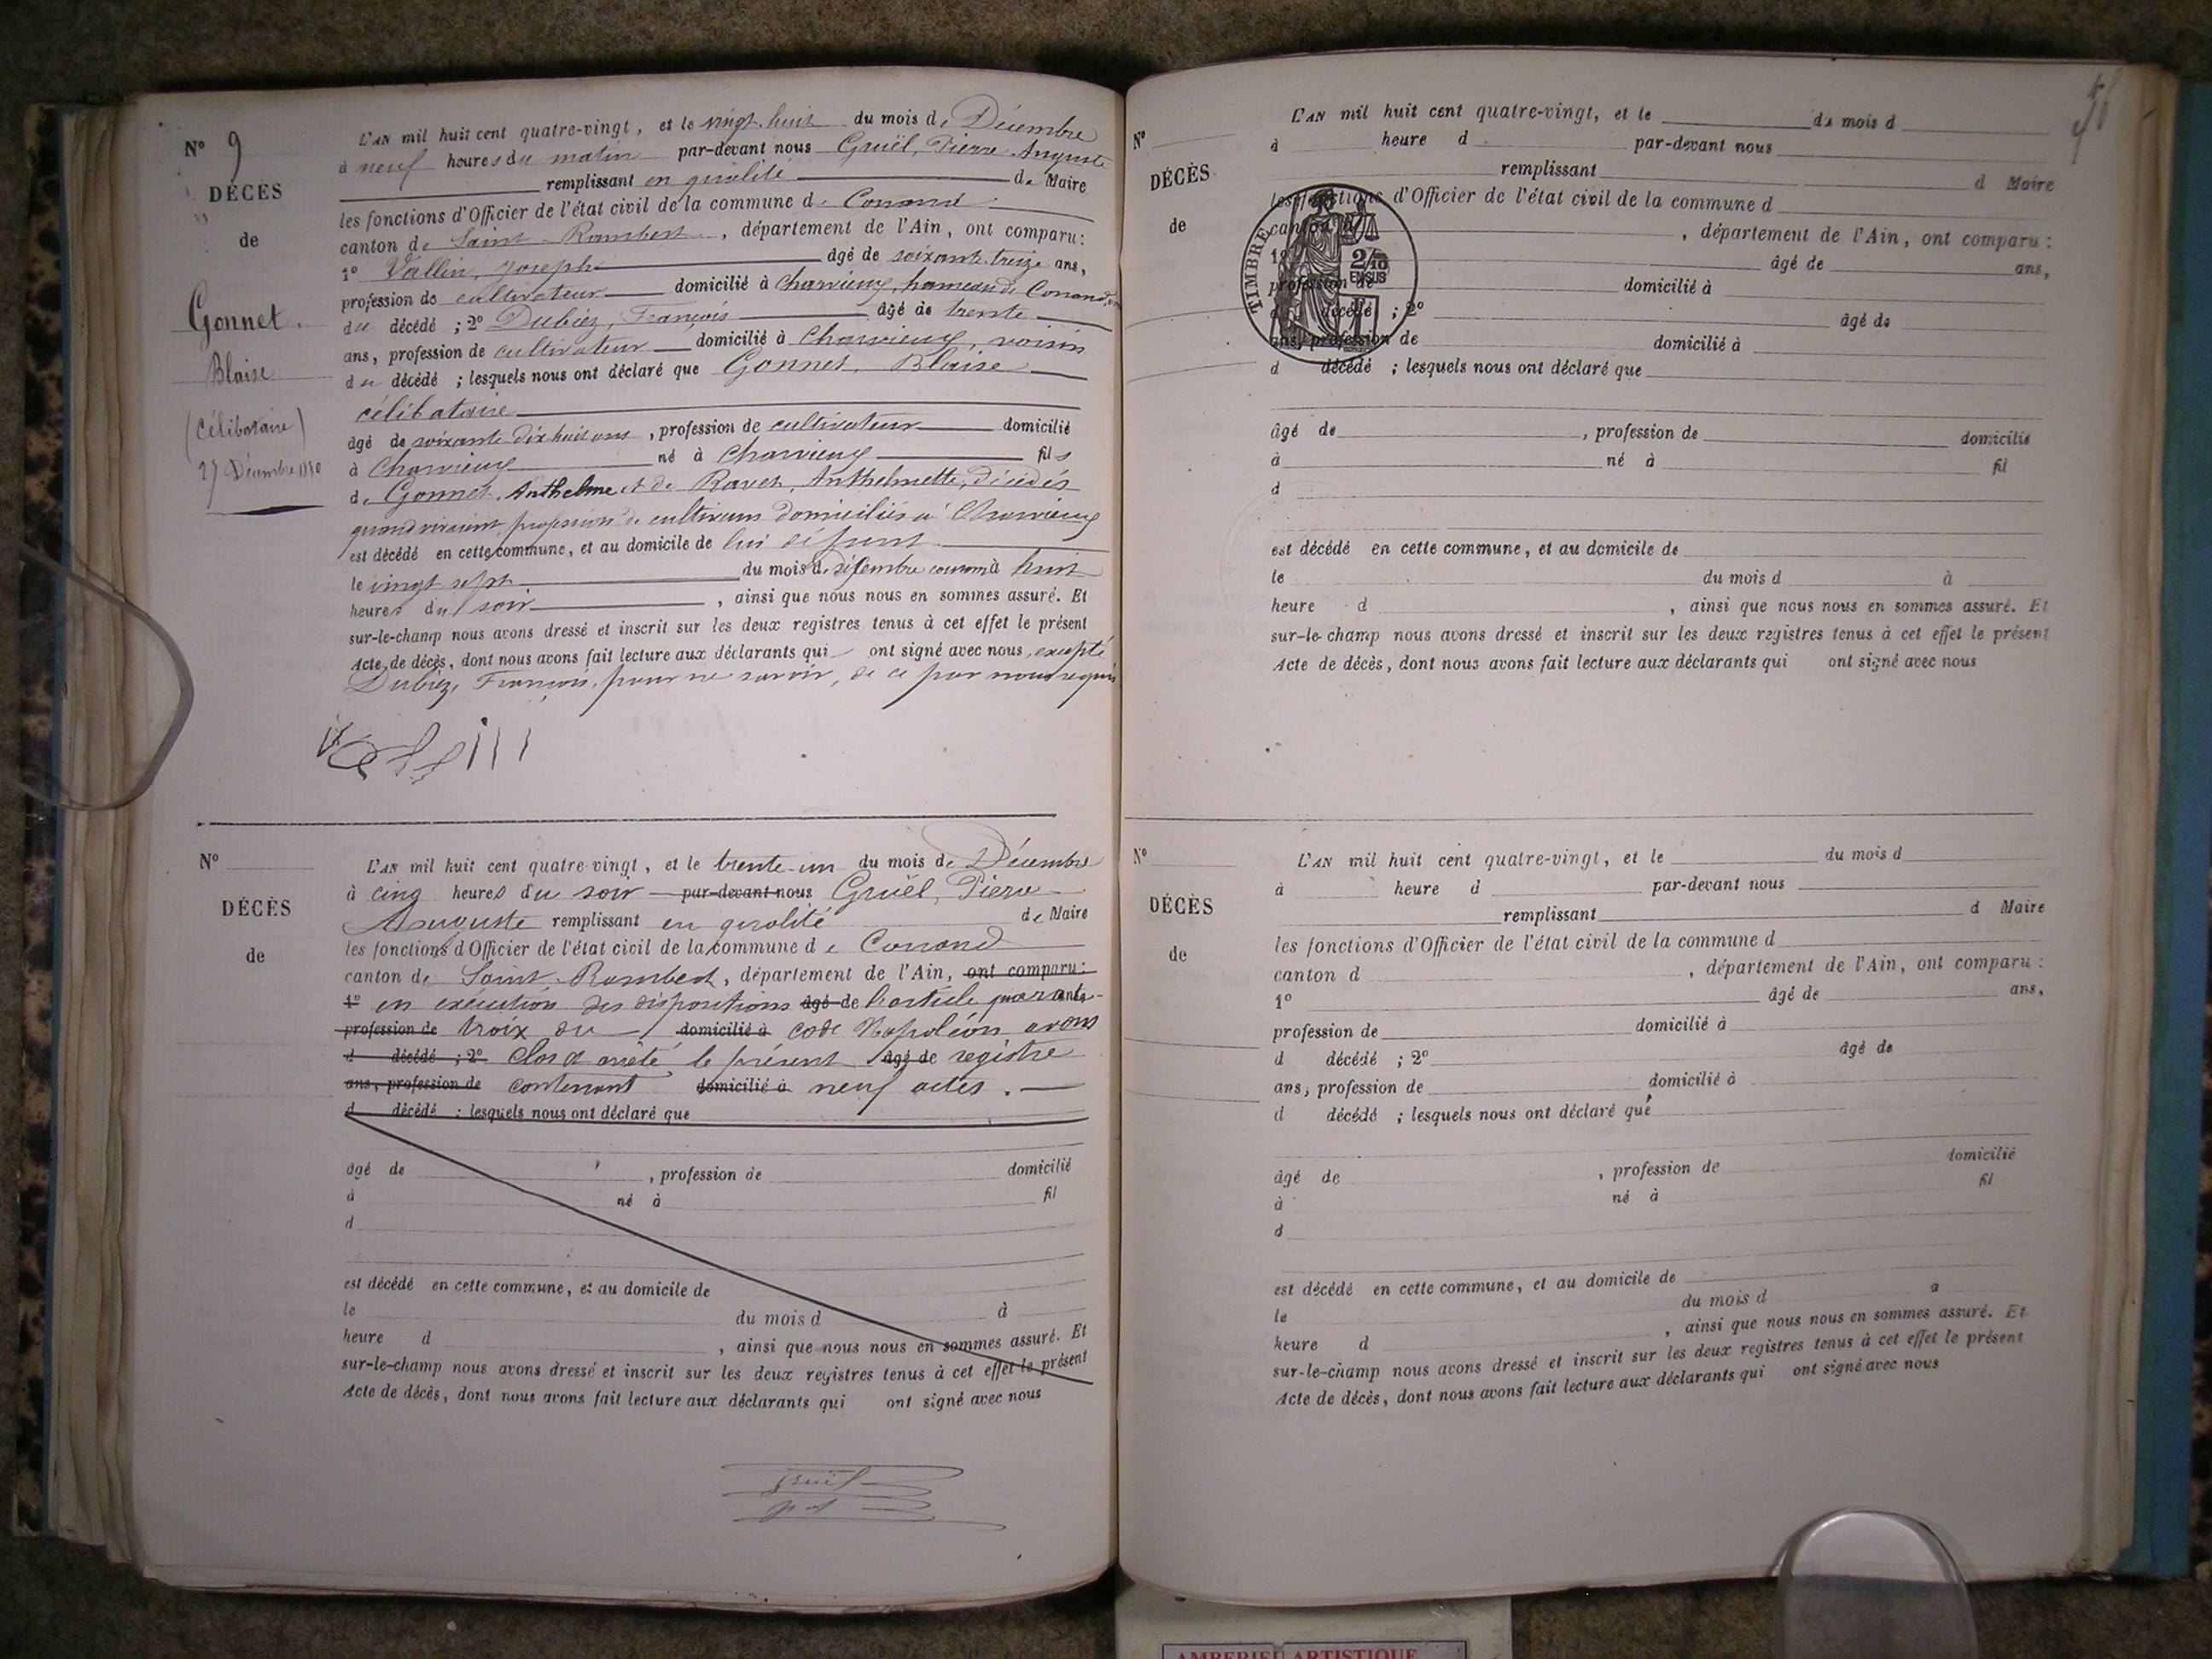 Nº 9
DÉCÈS
de
Gonnet.
Blaise
(Célibataire)
27 Décembre 1880
L'AN mil huit cent quatre-vingt, et le vingt huit du mois de Décembre
à neuf heures du matin par-devant nous Gruël, Pierre Auguste
remplissant en qualité de Maire
les fonctions d'Officier de l'état civil de la commune de Conand
canton de Saint-Rambert, département de l'Ain, ont comparu:
1º Vallin, Joseph âgé de soixante-treize ans,
profession de cultivateur domicilié à Charvieux, hameau de Conand,
du décédé ; 2º Dubiez, François âgé de trente
ans, profession de cultivateur domicilié à Charvieux, voisin
du décédé ; lesquels nous ont déclaré que Gonnet, Blaise
célibataire
âgé de soixante dix huit ans, profession de cultivateur domicilié
à Charvieux né à Charvieux fils
de Gonnet, Anthelme et de Ravet, Anthelmette, décédés
quand vivaient profession de cultivateurs domiciliés à Charvieux
est décédé en cette commune, et au domicile de lui défunt
le vingt sept du mois de décembre courant à huit
heures du soir, ainsi que nous nous en sommes assuré. Et
sur-le-champ nous avons dressé et inscrit sur les deux registres tenus à cet effet le présent
Acte de décès, dont nous avons fait lecture aux déclarants qui ont signé avec nous, excepté
Dubiez, François, pour ne savoir, de ce par nous requis
Nº
DÉCÈS
de
L'AN mil huit cent quatre-vingt, et le trente-un du mois de Décembre
à cinq heures du soir par-devant nous Gruël, Pierre
Auguste remplissant en qualité de Maire
les fonctions d'Officier de l'état civil de la commune de Conand
canton de Saint-Rambert, département de l'Ain, ont comparu:
1º en exécution des dispositions âgé de l'article quarante-
profession de troix du domicilié à code Napoléon avons
d décédé ; 2º Clos et arrêté le présent âgé de registre
ans, profession de contenant domicilié à neuf actes.
d décédé ; lesquels nous ont déclaré que
âgé de , profession de domicilié
à né à fil
d
est décédé en cette commune, et au domicile de
le du mois d à
heure d , ainsi que nous nous en sommes assuré. Et
sur-le-champ nous avons dressé et inscrit sur les deux registres tenus à cet effet le présent
Acte de décès, dont nous avons fait lecture aux déclarants qui ont signé avec nous
Gruël
Nº
DÉCÈS
de
L'AN mil huit cent quatre-vingt, et le du mois d
à heure d par-devant nous
remplissant d Maire
les fonctions d'Officier de l'état civil de la commune d
canton d , département de l'Ain, ont comparu :
1º âgé de ans,
profession de domicilié à
d décédé ; 2º âgé de
ans, profession de domicilié à
d décédé ; lesquels nous ont déclaré que
TIMBRE
2/10
EN SUS
âgé de , profession de domicilié
à né à fil
d
est décédé en cette commune, et au domicile de
le du mois d à
heure d , ainsi que nous nous en sommes assuré. Et
sur-le-champ nous avons dressé et inscrit sur les deux registres tenus à cet effet le présent
Acte de décès, dont nous avons fait lecture aux déclarants qui ont signé avec nous
Nº
DÉCÈS
de
L'AN mil huit cent quatre-vingt, et le du mois d
à heure d par-devant nous
remplissant d Maire
les fonctions d'Officier de l'état civil de la commune d
canton d , département de l'Ain, ont comparu :
1º âgé de ans,
profession de domicilié à
d décédé ; 2º âgé de
ans, profession de domicilié à
d décédé ; lesquels nous ont déclaré que
âgé de , profession de domicilié
à né à fil
d
est décédé en cette commune, et au domicile de
le du mois d à
heure d , ainsi que nous nous en sommes assuré. Et
sur-le-champ nous avons dressé et inscrit sur les deux registres tenus à cet effet le présent
Acte de décès, dont nous avons fait lecture aux déclarants qui ont signé avec nous
AMBERIEU ARTISTIQUE